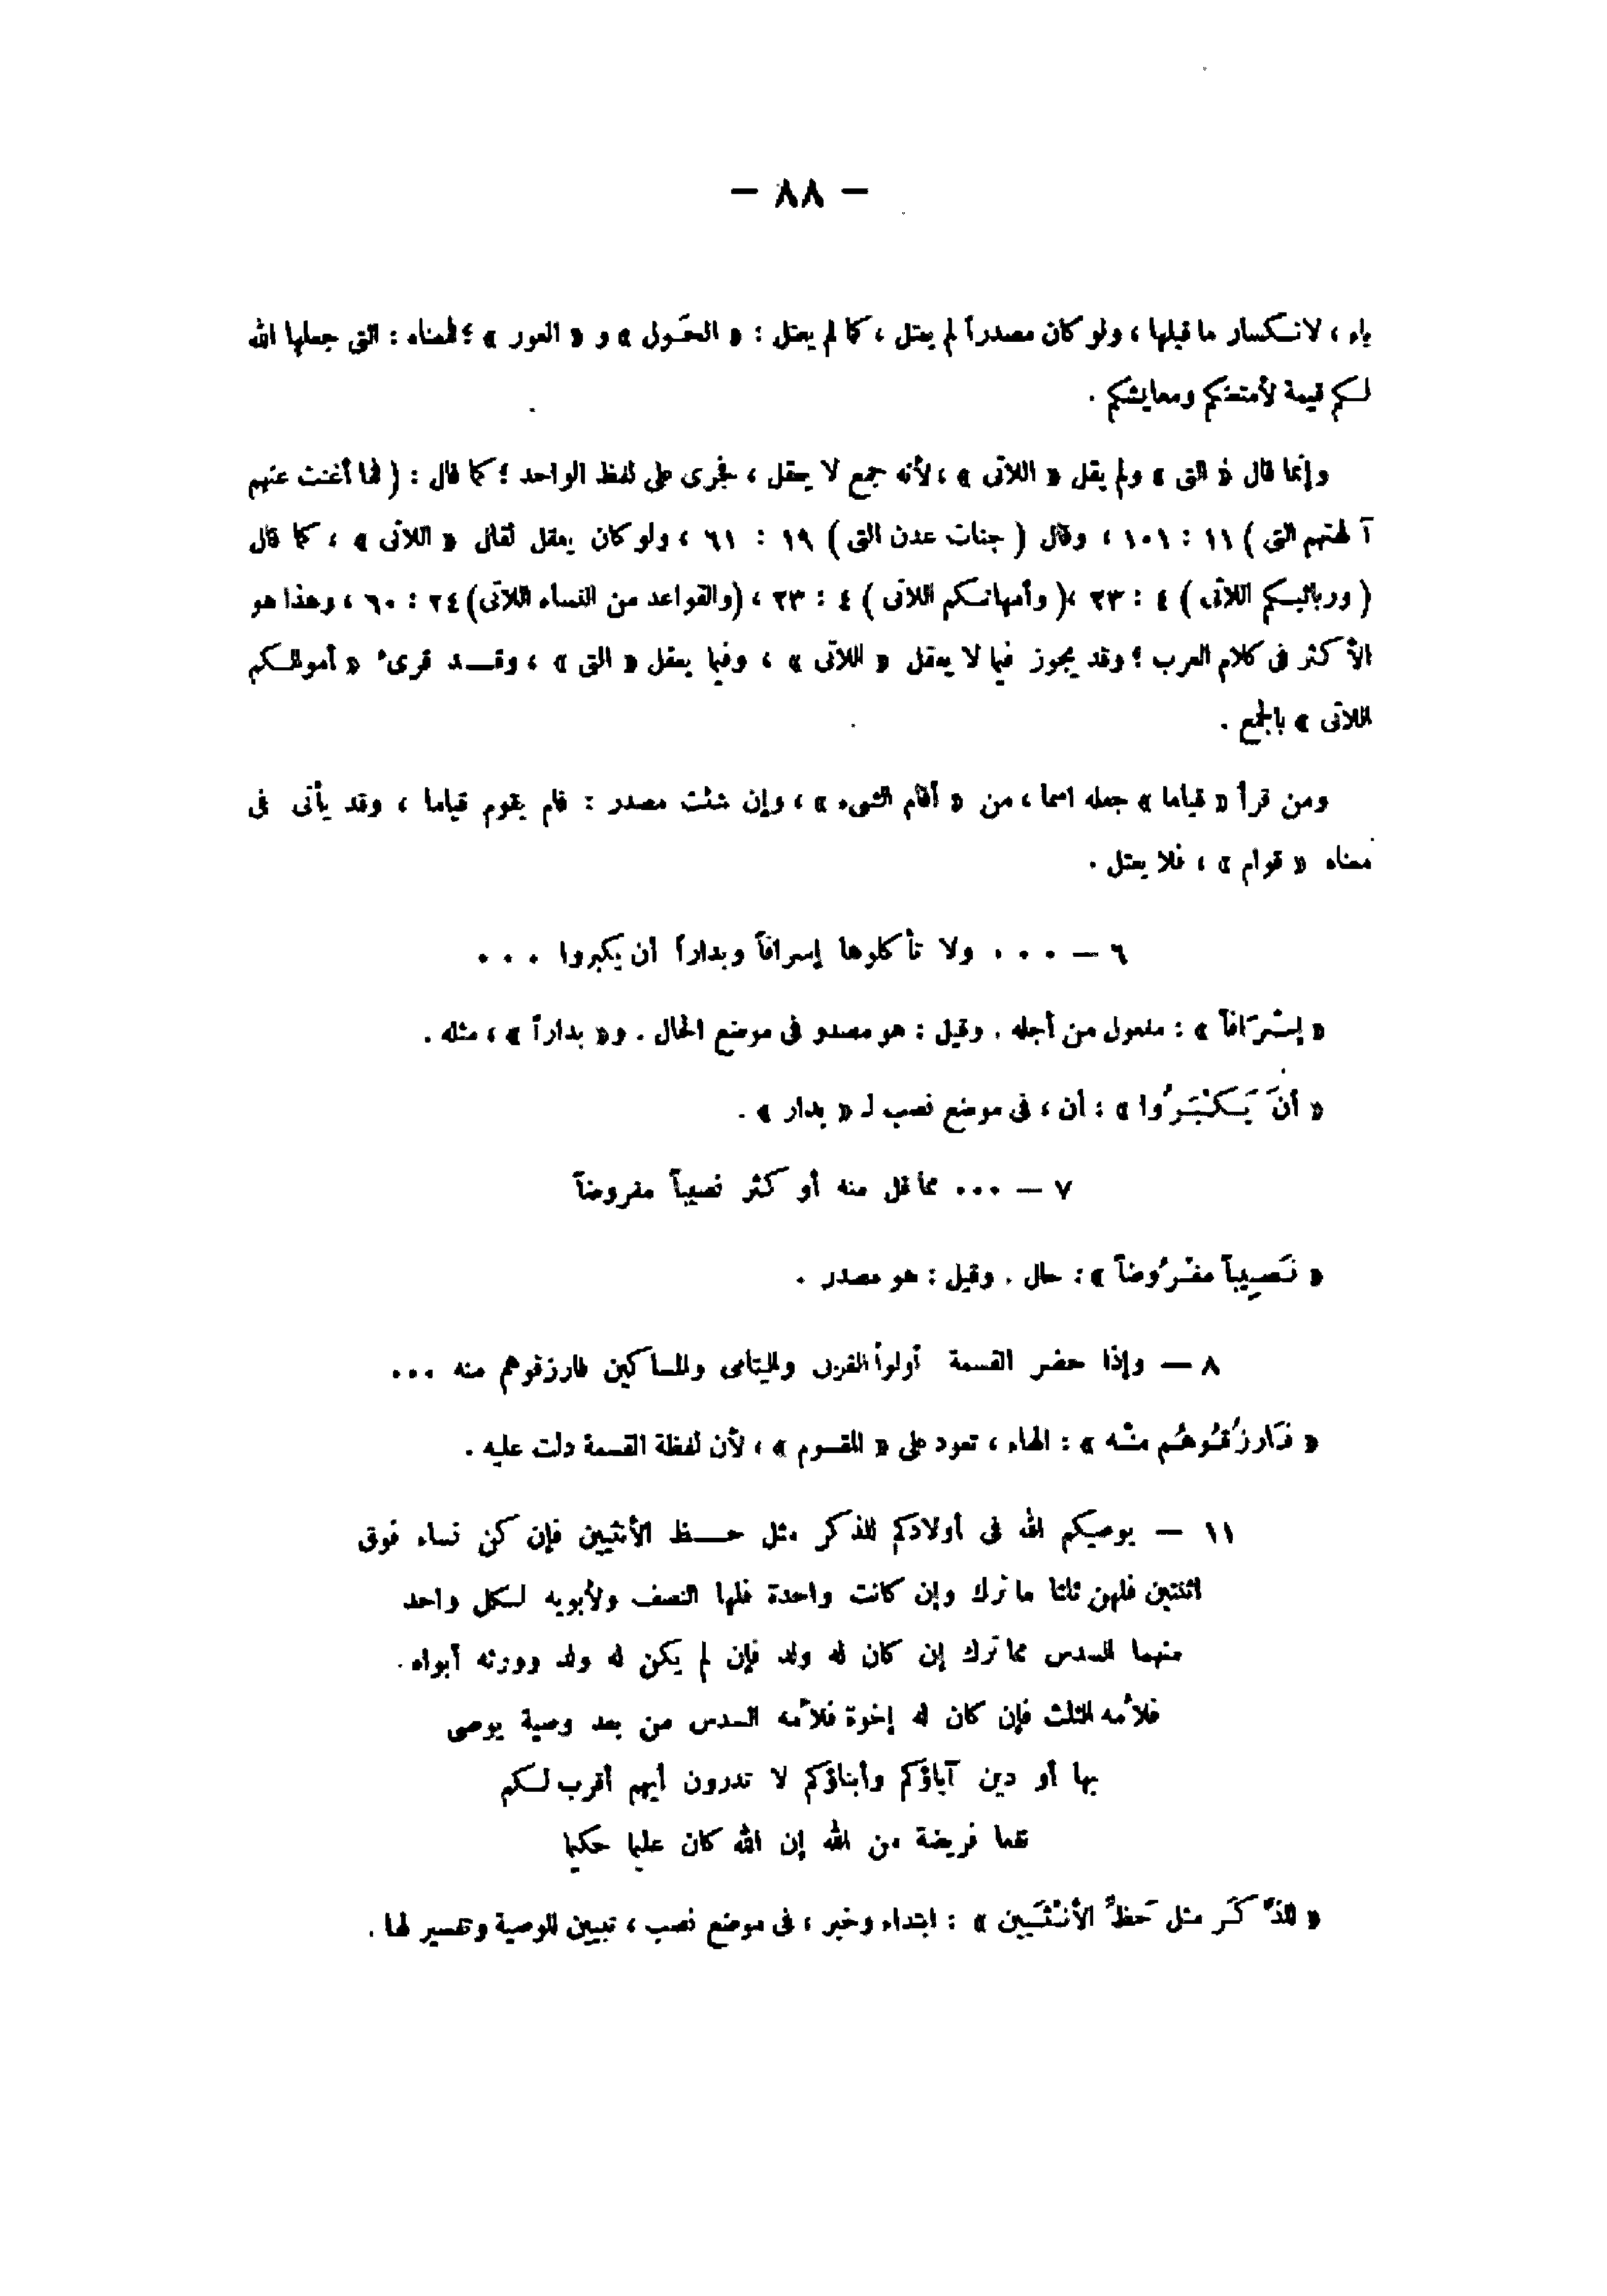 — ٨٨ —
ياء ، لانكسار ما قبلها ، ولو كان مصدراً لم يعتل ، كما لم يعتل : « الحَول » و « العور » ؛ فمعناه : التى جعلها الله
لكم قيمة لأمتعتكم ومعايشكم .
وإنما قال « التى » ولم يقل « اللاتى » ، لأنه جمع لا يعقل ، فجرى على لفظ الواحد ؛ كما قال : ( فما أغنت عنهم
آلهتهم التى ) ١١ : ١٠١ ، وقال ( جنات عدن التى ) ١٩ : ٦١ ، ولو كان يعقل لقال « اللاتى » ، كما قال
( وربائبكم اللاتى ) ٤ : ٢٣ ،( وأمهاتكم اللاتى ) ٤ : ٢٣ ، (والقواعد من النساء اللاتى) ٢٤ : ٦٠ ، وهذا هو
الأكثر فى كلام العرب ؛ وقد يجوز فيما لا يعقل « اللاتى » ، وفيما يعقل « التى » ، وقد قرىء « أموالكم
اللاتى » بالجمع .
ومن قرأ « قياما » جعله اسما ، من « أقام الشىء » ، وإن شئت مصدر : قام يقوم قياما ، وقد يأتى فى
معناه « قوام » ، فلا يعتل .
٦ — ٠٠٠ ولا تأكلوها إسرافاً وبداراً أن يكبروا ٠٠٠
« إِسْرَافاً » : مفعول من أجله . وقيل : هو مصدر فى موضع الحال . و« بداراً » ، مثله .
« أنَ يَكْبَرُوا » : أن ، فى موضع نصب لـ « بدار » .
٧ — ٠٠٠ مما قل منه أو كثر نصيباً مفروضاً
« نَصِيباً مفْرُوضاً » : حال . وقيل : هو مصدر .
٨ — وإذا حضر القسمة أولوا القربى واليتامى والمساكين فارزقوهم منه ٠٠٠
« فَارزُقُوهُم منْه » : الهاء ، تعود على « المقسوم » ، لأن لفظة القسمة دلت عليه .
١١ — يوصيكم الله فى أولادكم للذكر مثل حظ الأنثيين فإن كن نساء فوق
اثنتين فلهن ثلثا ما ترك وإن كانت واحدة فلها النصف ولأبويه لكل واحد
منهما السدس مما ترك إن كان له ولد فإن لم يكن له ولد وورثه أبواه .
فلأمه الثلث فإن كان له إخوة فلأمه السدس من بعد وصية يوصى
بها أو دين آباؤكم وأبناؤكم لا تدرون أيهم أقرب لكم
نفعا فريضة من الله إن الله كان عليما حكيما
« للذَّكَر مثل حَظِّ الأنْثَيين » : ابتداء وخبر ، فى موضع نصب ، تبيين للوصية وتفسير لها .